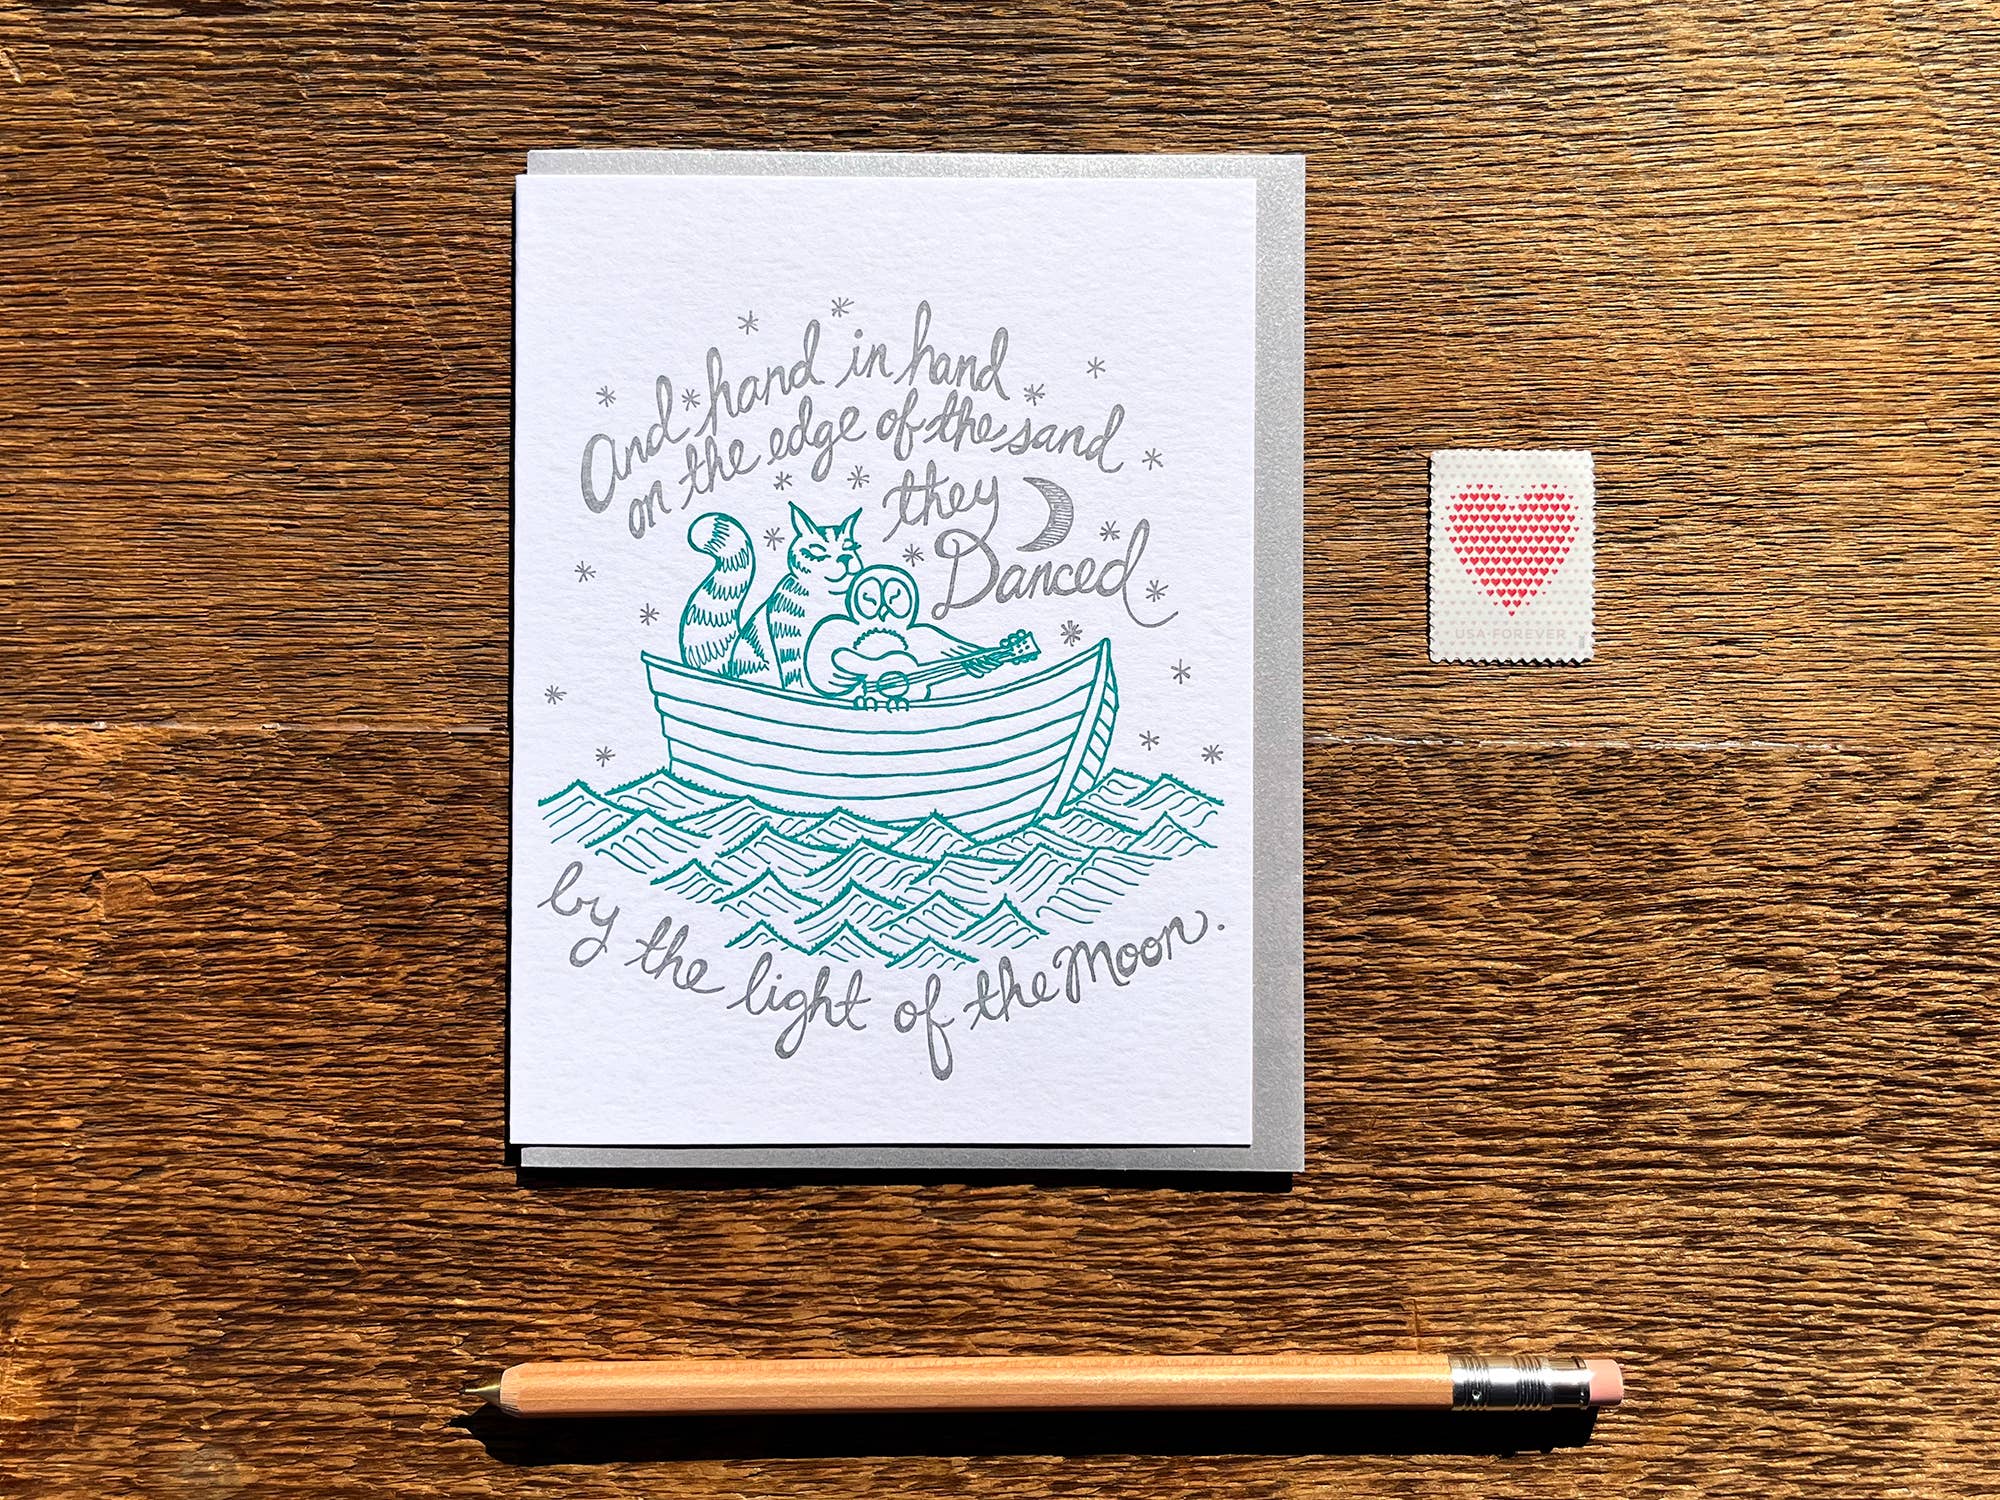 And hand in hand
on the edge of the sand
they
Danced
by the light of the Moon.
USA FOREVER